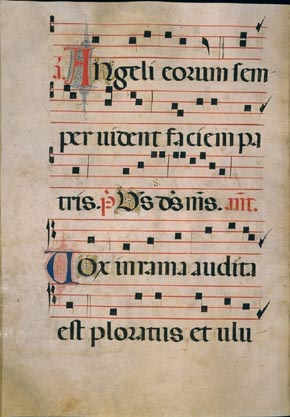 Angeli eorum sem
per uident faciem pa
tris. añt.
Vox in rama audita
est ploratus et ulu